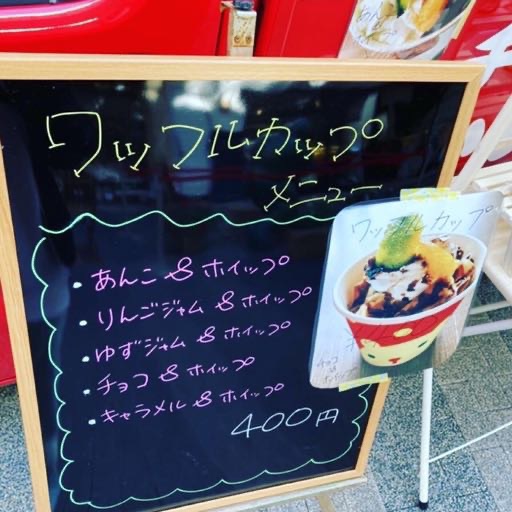 ワッフルカップ
メニュー
・あんこ&ホイップ
・りんごジャム&ホイップ
・ゆずジャム&ホイップ
・チョコ&ホイップ
・キャラメル&ホイップ
400円
ワッフルカップ
チョコ